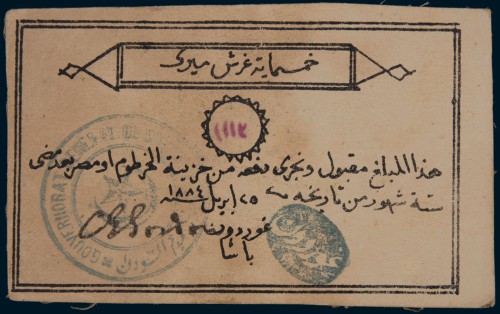 خمسماية غرش ميرى
١١١٢
هذا المبلغ مقبول ونجرى دفعه من خزينة الخرطوم او مصر بعد مضى
ستة شهور من تاريخه ٢٥ ابريل ١٨٨٤ سنه
غوردون
باشا
GOUVERNORAT GENERAL DU